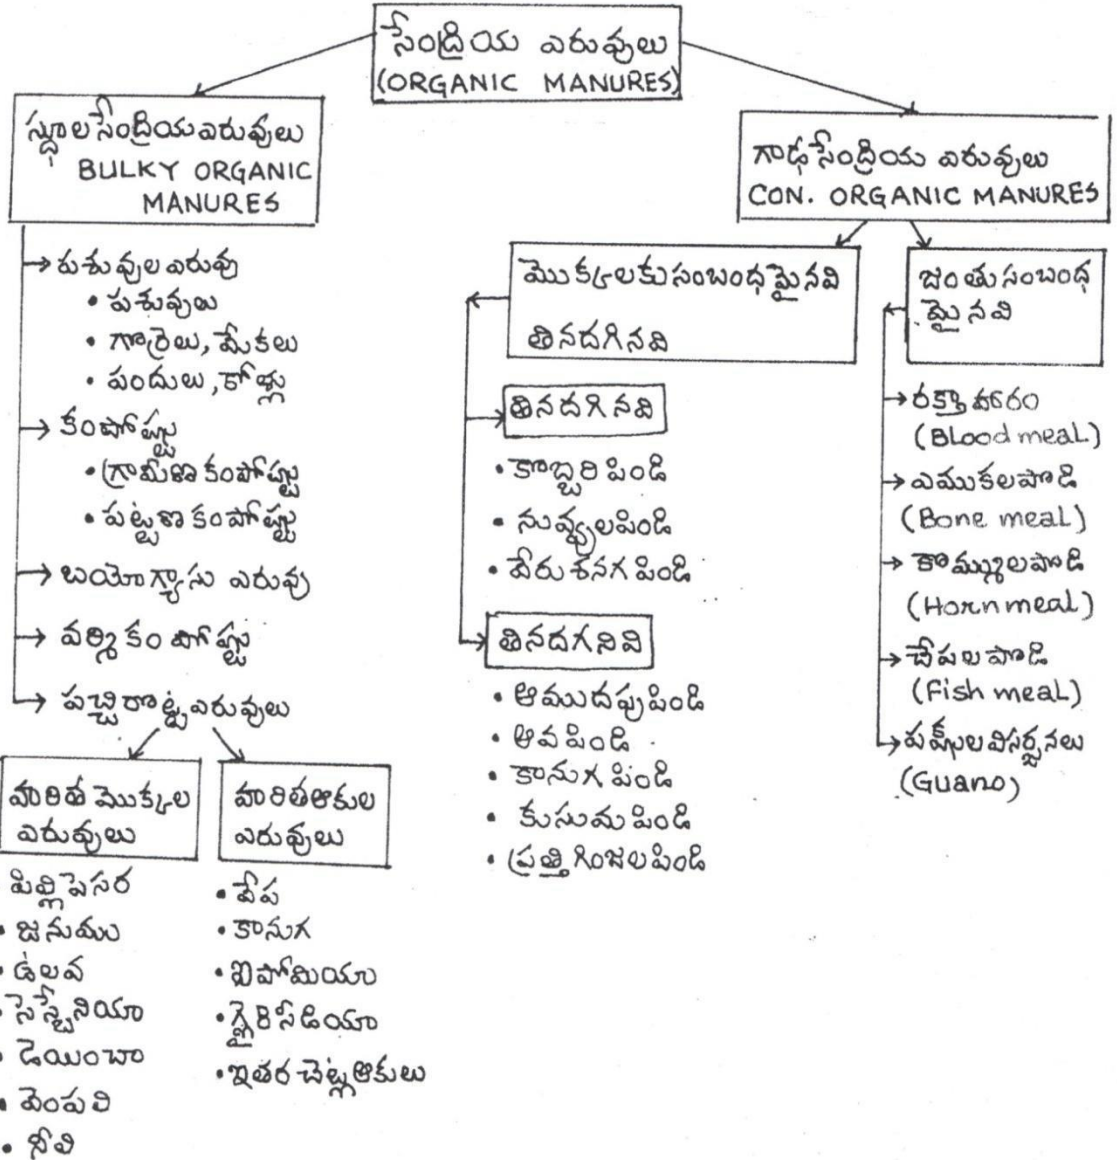 సేంద్రియ ఎరువులు
(ORGANIC MANURES)
స్థూలసేంద్రియఎరువులు
BULKY ORGANIC
MANURES
పశువుల ఎరువు
• పశువులు
• గొర్రెలు, మేకలు
• పందులు, కోళ్లు
కంపోష్టు
• గ్రామీణ కంపోష్టు
• పట్టణ కంపోష్టు
బయోగ్యాసు ఎరువు
వర్మికం పోష్టు
పచ్చిరొట్టఎరువులు
హరిత మొక్కల
ఎరువులు
పిల్లిపెసర
• జనుము
• ఉలవ
• సెస్బేనియా
• డెయించా
• వెంపలి
• నీలి
హరితఆకుల
ఎరువులు
• వేప
• కానుగ
• ఐపోమియా
• గ్లైరిసీడియా
• ఇతర చెట్లఆకులు
గాఢసేంద్రియ ఎరువులు
CON. ORGANIC MANURES
మొక్కలకుసంబంధమైనవి
తినదగినవి
తినదగినవి
• కొబ్బరి పిండి
• నువ్వులపిండి
• వేరుశనగ పిండి
తినదగనివి
• ఆముదపుపిండి
• ఆవ పిండి
• కానుగ పిండి
• కుసుమ పిండి
• ప్రత్తి గింజలపిండి
జంతుసంబంధ
మైనవి
రక్తాహారం
(Blood meal)
ఎముకలపొడి
(Bone meal)
కొమ్ములపొడి
(Horn meal)
చేపలపొడి
(Fish meal)
పక్షులవిసర్జనలు
(Guano)